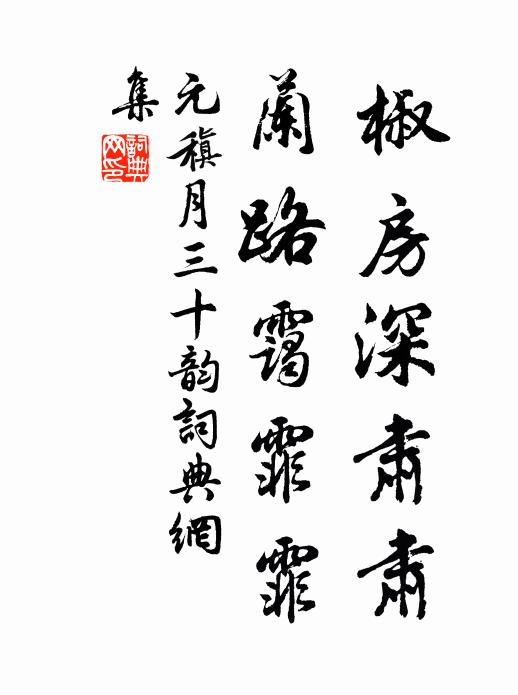 椒房深肅肅
蘭路靄霏霏
元稹月三十韵詞典網
集
詞典網印